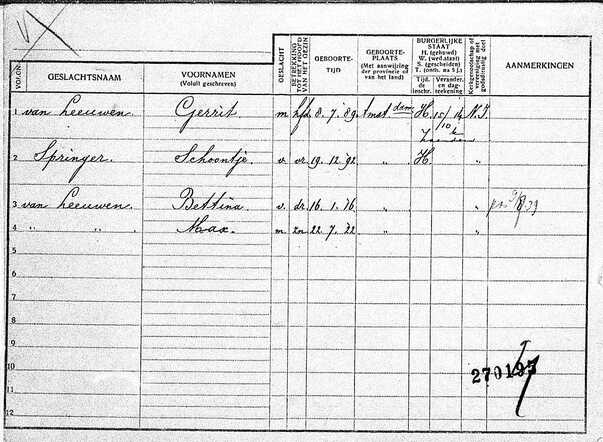 VOLGN.
GESLACHTSNAAM
VOORNAMEN
(Voluit geschreven)
GESLACHT
BETREKKING TOT HET HOOFD VAN HET GEZIN
GEBOORTE-
TIJD
GEBOORTE-
PLAATS
(Met aanwijzing der provincie of van het land)
BURGERLIJKE STAAT
H. (gehuwd)
W. (wed.staat)
S. (gescheiden)
Tijd. de inschr.
Verander. en dag-teekening
Kerkgenootschap of vereeniging met godsdienstig doel
AANMERKINGEN
1 van Leeuwen. Gerrit m. hfd. 8. 7. 89. Amst.dam. H. 15/10 14 N.I.
2 Springer. Schoontje. v. vr. 19. 12. 92 " H. "
3 van Leeuwen. Bettina v. dr. 16. 1. 16 " "
4 " " Max. m. zn. 22. 7. 22 " "
5
6
7
8
9
10
11
12
270195